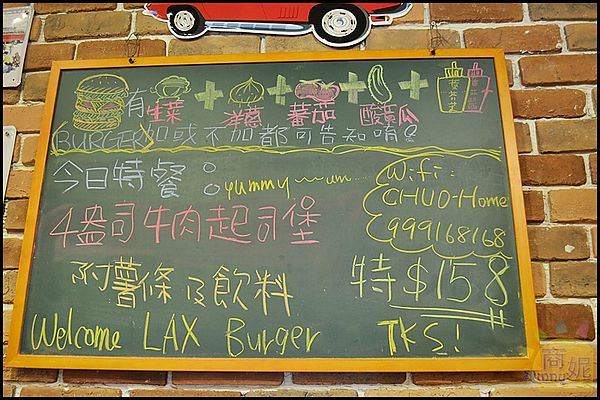 有生菜+洋蔥+蕃茄+酸黃瓜+
BURGER加或不加都可告知唷!
今日特餐:yummy~um...
Wifi:
CHUO-Home
999168168
4盎司牛肉起司堡
附薯條及飲料
特$158
Welcome LAX Burger TKS!